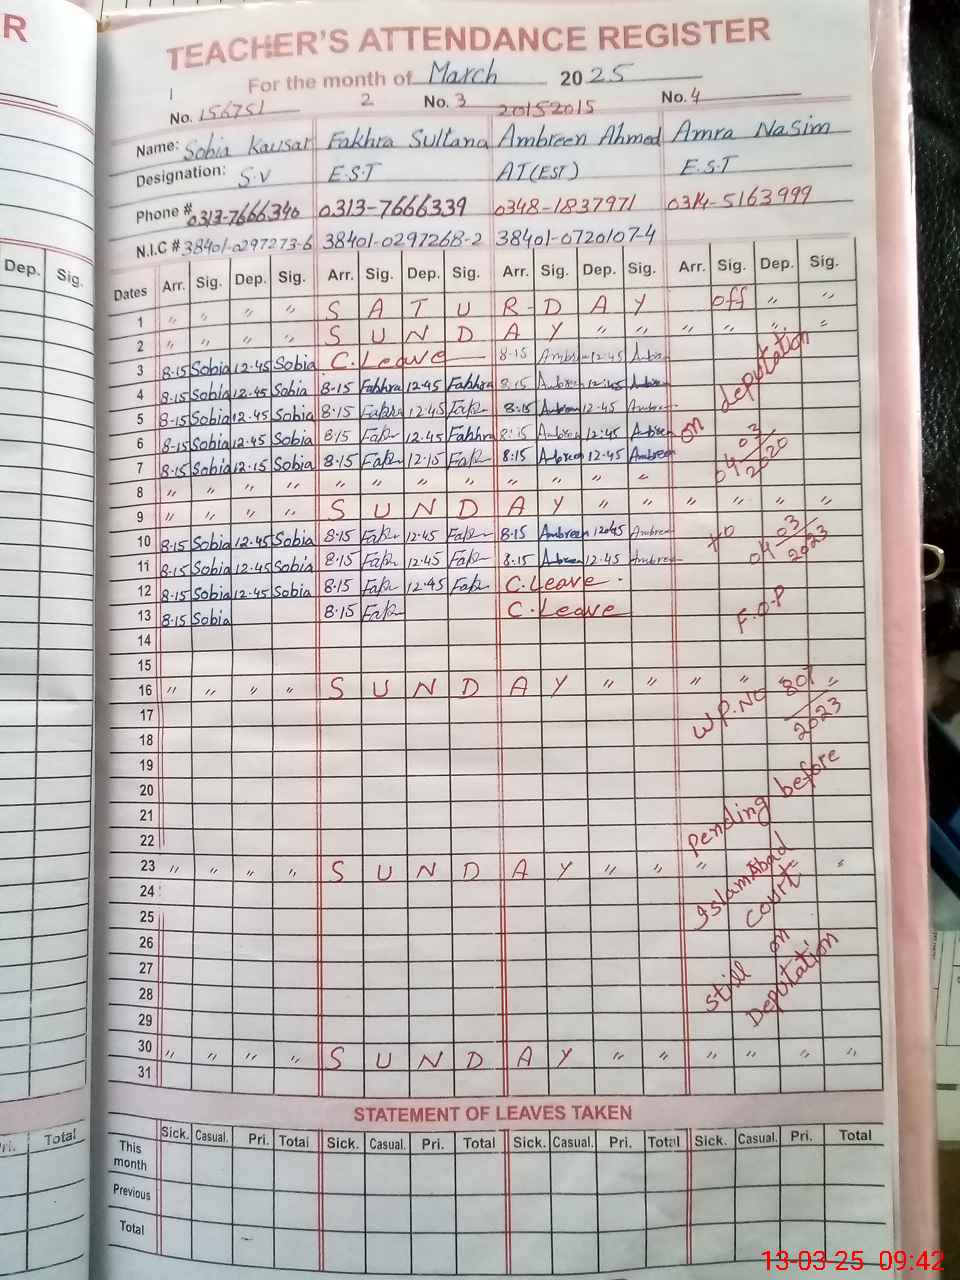 R
TEACHER'S ATTENDANCE REGISTER
For the month of March 2025
1 2
No. 156751 No. 3 20152015 No. 4
Name: Sobia Kausar Fakhra Sultana Ambreen Ahmed Amra Nasim
Designation: S.V E.S.T AT(EST) E.S.T
Phone # 0313-7666340 0313-7666339 0348-1837971 0314-5163999
N.I.C # 38401-0297273-6 38401-0297268-2 38401-0720107-4
Dep. Sig.
Dates Arr. Sig. Dep. Sig. Arr. Sig. Dep. Sig. Arr. Sig. Dep. Sig. Arr. Sig. Dep. Sig.
1 " " " " S A T U R D A Y off " "
2 " " " " S U N D A Y " " " " " "
3 8-15 Sobia 12.45 Sobia C.Leave 8-15 Ambreen 12-45
4 8-15 Sobia 12.45 Sobia 8-15 Fakhra 12.45 Fakhra 8-15 Ambreen 12-45 Ambreen
5 8-15 Sobia 12.45 Sobia 8-15 Fakhra 12.45 8-15 Ambreen 12-45 Ambreen
6 8-15 Sobia 12.45 Sobia 8-15 12.45 Fakhra 8-15 Ambreen 12.45 Ambreen
7 8-15 Sobia 12.15 Sobia 8-15 12-15 8-15 Ambreen 12.45 Ambreen
8 " " " " " " " " " " " "
9 " " " " S U N D A Y " " " " " "
10 8-15 Sobia 12.45 Sobia 8-15 12.45 8-15 Ambreen 12.45 Ambreen
11 8-15 Sobia 12.45 Sobia 8-15 12.45 8-15 Ambreen 12.45 Ambreen
12 8-15 Sobia 12.45 Sobia 8-15 12.45 C.Leave
13 8-15 Sobia 8-15 C.Leave
14
15
16 " " " " S U N D A Y " " " " " "
17
18
19
20
21
22
23 " " " " S U N D A Y " " " "
24
25
26
27
28
29
30 " " " " S U N D A Y " " " " " "
31
on deputation
04 03/2020
to 04 03/2023
F.O.P
W.P.No 807/2023
Pending before
Islamabad
Court
still on
Deputation
STATEMENT OF LEAVES TAKEN
Pri. Total
Sick. Casual. Pri. Total Sick. Casual. Pri. Total Sick. Casual. Pri. Total Sick. Casual. Pri. Total
This month
Previous
Total
13-03-25 09:42